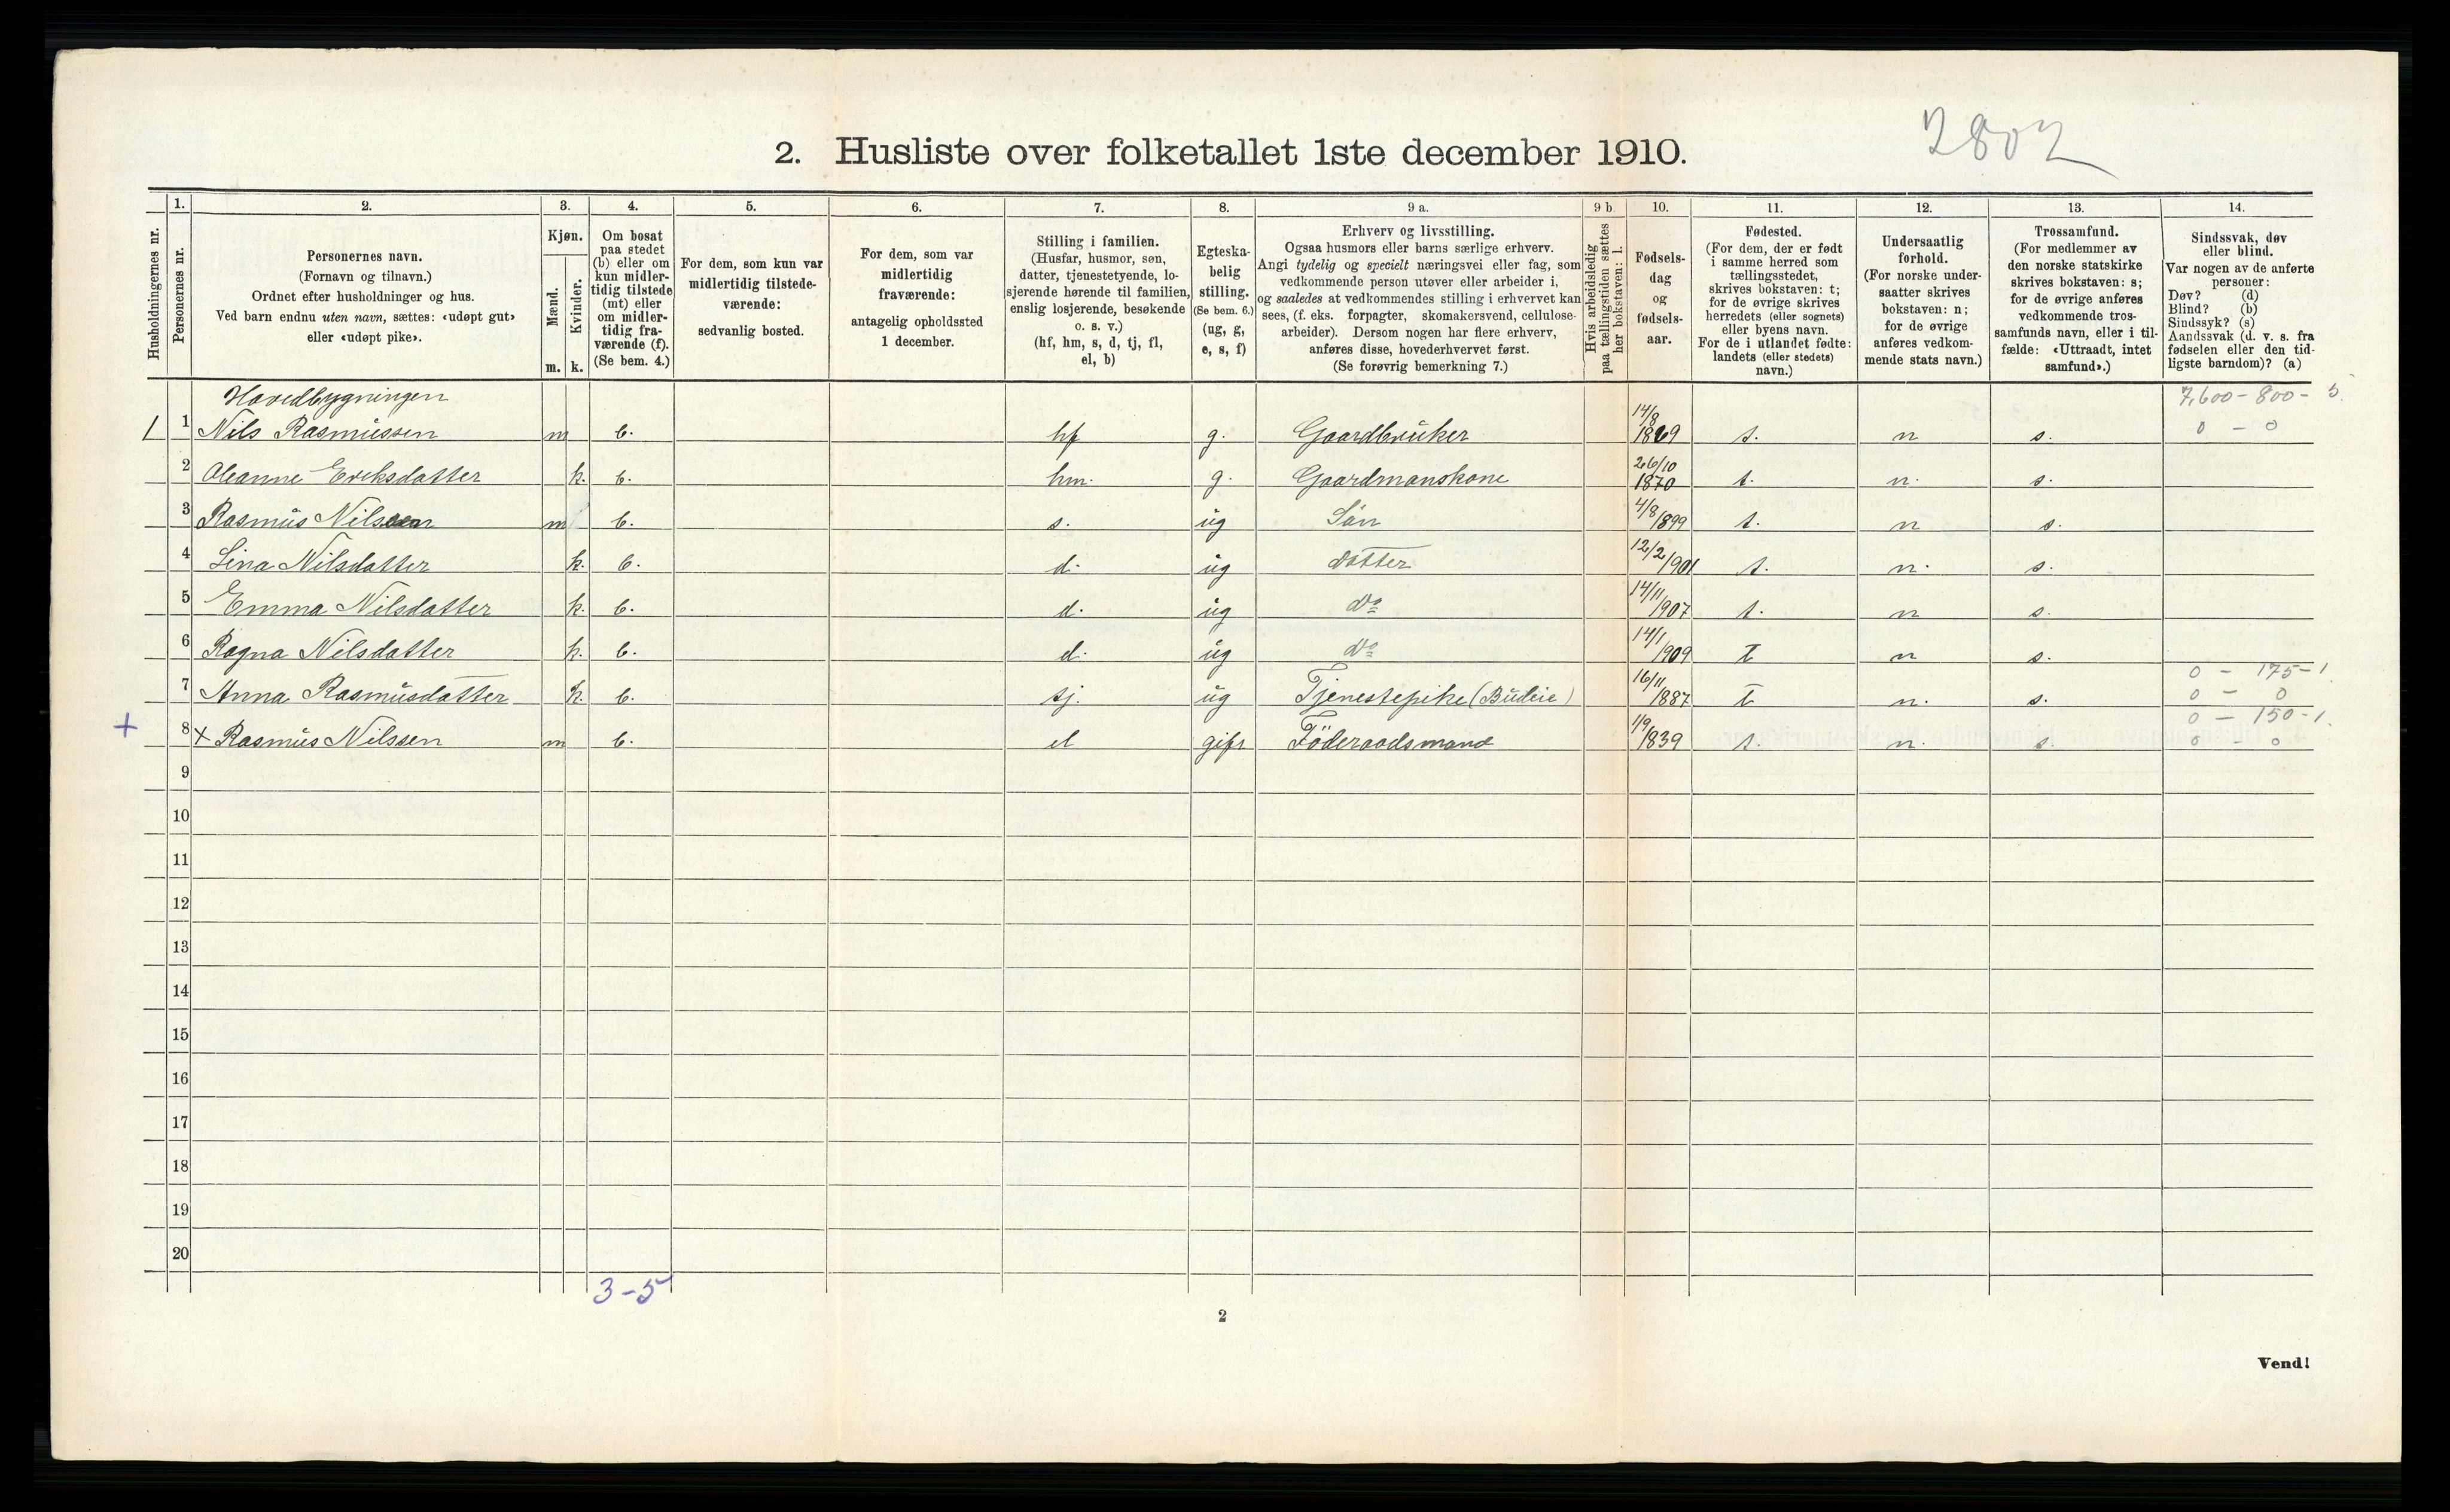 2802
2. Husliste over folketallet 1ste december 1910.
Husholdningernes nr.
1.
Personernes nr.
2.
Personernes navn.
(Fornavn og tilnavn.)
Ordnet efter husholdninger og hus.
Ved barn endnu uten navn, sættes: «udøpt gut»
eller «udøpt pike».
3.
Kjøn.
Mænd.
Kvinder.
m. k.
4.
Om bosat
paa stedet
(b) eller om
kun midler-
tidig tilstede
(mt) eller
om midler-
tidig fra-
værende (f).
(Se bem. 4.)
5.
For dem, som kun var
midlertidig tilstede-
værende:
sedvanlig bosted.
6.
For dem, som var
midlertidig
fraværende:
antagelig opholdssted
1 december.
7.
Stilling i familien.
(Husfar, husmor, søn,
datter, tjenestetyende, lo-
sjerende hørende til familien,
enslig losjerende, besøkende
o. s. v.)
(hf, hm, s, d, tj, fl,
el, b)
8.
Egteska-
belig
stilling.
(Se bem. 6.)
(ug, g,
e, s, f)
9 a.
Erhverv og livsstilling.
Ogsaa husmors eller barns særlige erhverv.
Angi tydelig og specielt næringsvei eller fag, som
vedkommende person utøver eller arbeider i,
og saaledes at vedkommendes stilling i erhvervet kan
sees, (f. eks. forpagter, skomakersvend, cellulose-
arbeider). Dersom nogen har flere erhverv,
anføres disse, hovederhvervet først.
(Se forøvrig bemerkning 7.)
9 b
Hvis arbeidsledig
paa tællingstiden sættes
her bokstaven: l.
10.
Fødsels-
dag
og
fødsels-
aar.
11.
Fødested.
(For dem, der er født
i samme herred som
tællingsstedet,
skrives bokstaven: t;
for de øvrige skrives
herredets (eller sognets)
eller byens navn.
For de i utlandet fødte:
landets (eller stedets)
navn.)
12.
Undersaatlig
forhold.
(For norske under-
saatter skrives
bokstaven: n;
for de øvrige
anføres vedkom-
mende stats navn.)
13.
Trossamfund.
(For medlemmer av
den norske statskirke
skrives bokstaven: s;
for de øvrige anføres
vedkommende tros-
samfunds navn, eller i til-
fælde: «Uttraadt, intet
samfund».)
14.
Sindssvak, døv
eller blind.
Var nogen av de anførte
personer:
Døv? (d)
Blind? (b)
Sindssyk? (s)
Aandssvak (d. v. s. fra
fødselen eller den tid-
ligste barndom)? (a)
Hovedbygningen 7,600 - 800 - 5
1 1 Nils Rasmussen m b. hf g. Gaardbruker 14/8 1869 t. n s. 0 - 0
2 Oleanne Eriksdatter k. b. hm. g. Gaardmanskone 26/10 1870 t. n. s.
3 Rasmus Nilssen m b. s. ug Sön 4/8 1899 t. n s.
4 Lina Nilsdatter k. b. d. ug datter 12/2 1901 t. n. s.
5 Emma Nilsdatter k. b. d. ug do 14/11 1907 t. n s.
6 Ragna Nilsdatter k. b. d. ug do 14/1 1909 t n s.
0 - 175 - 1
7 Anna Rasmusdatter k. b. tj. ug Tjenestepike (Budeie) 16/11 1887 t n. s. 0 - 0
0 - 150 - 1.
+ 8 x Rasmus Nilssen m b. el gift Föderaadsmand 1/9 1839 t. n. s. 0 - 0
9
10
11
12
13
14
15
16
17
18
19
20
3 - 5
2
Vend!